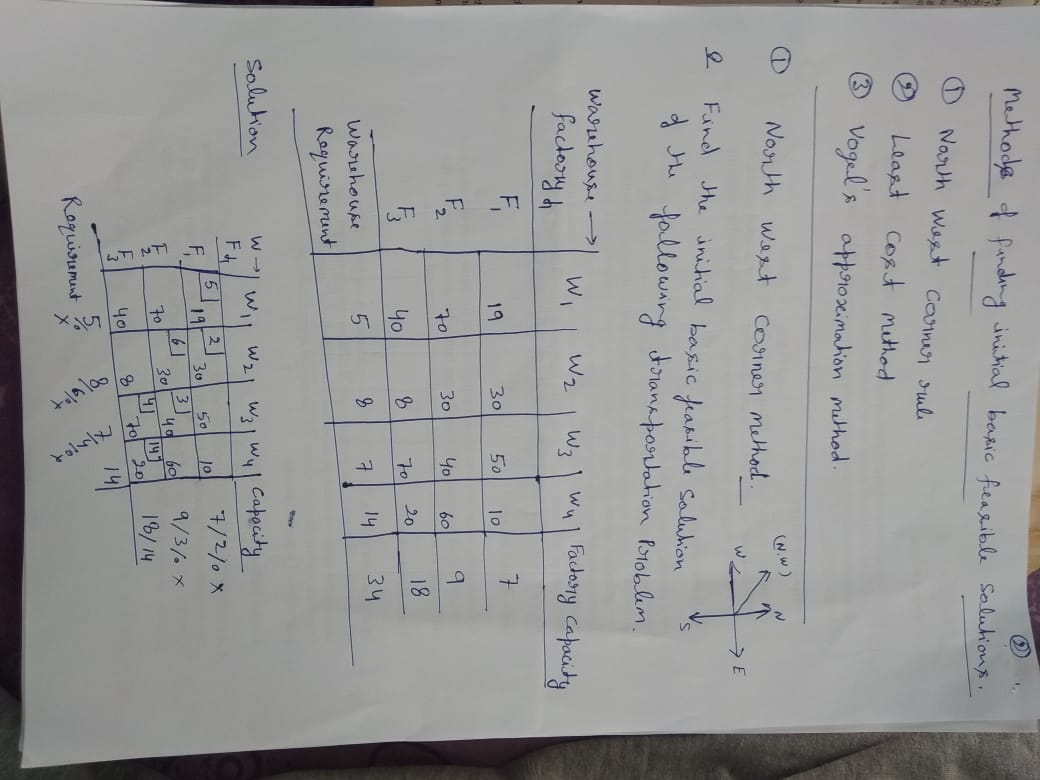 ②
Methods of finding initial basic feasible solutions.
① North West Corner rule
② Least Cost Method
③ Vogel's approximation method.
① North West Corner method.
(N.W) N
W E
S
Q Find the initial basic feasible solution
of the following transportation Problem.
Warehouse →
factory ↓ W1 W2 W3 W4 Factory Capacity
F1 19 30 50 10 7
F2 70 30 40 60 9
F3 40 8 70 20 18
Warehouse
Requirement 5 8 7 14 34
Solution
W→ W1 W2 W3 W4 Capacity
F↓
F1 5 19 2 30 50 10 7/2/0 x
F2 70 6 30 3 40 60 9/3/0 x
F3 40 8 4 70 14 20 18/14
Requirement 5/0 x 8/6/0 x 7/4/0 x 14